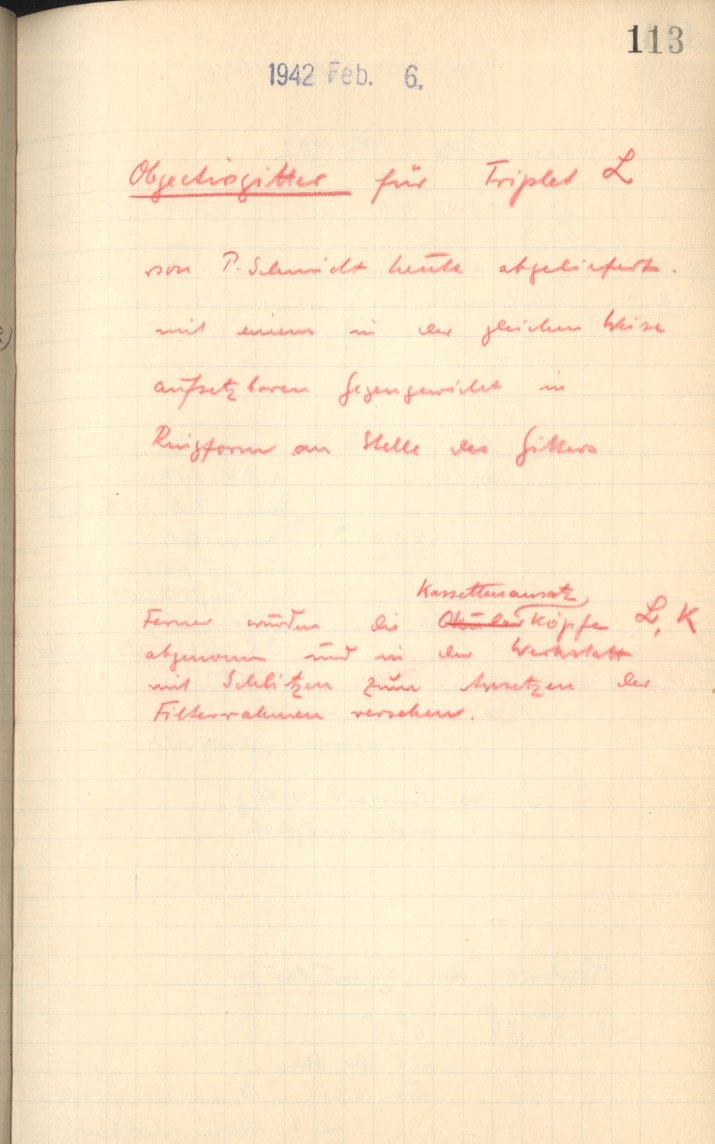 113
1942 Feb. 6.
Objectivgitter für Triplet L
von P. Schmidt heute abgeliefert.
mit einem in der gleichen Weise
aufsetzbaren Gegengewicht in
Ringform an Stelle des Gitters
Kassettenansatz
Ferner wurden die Okularköpfe L, K
abgenomm und in der Werkstatt
mit Schlitzen zum Ansetzen der
Filterrahmen versehen.